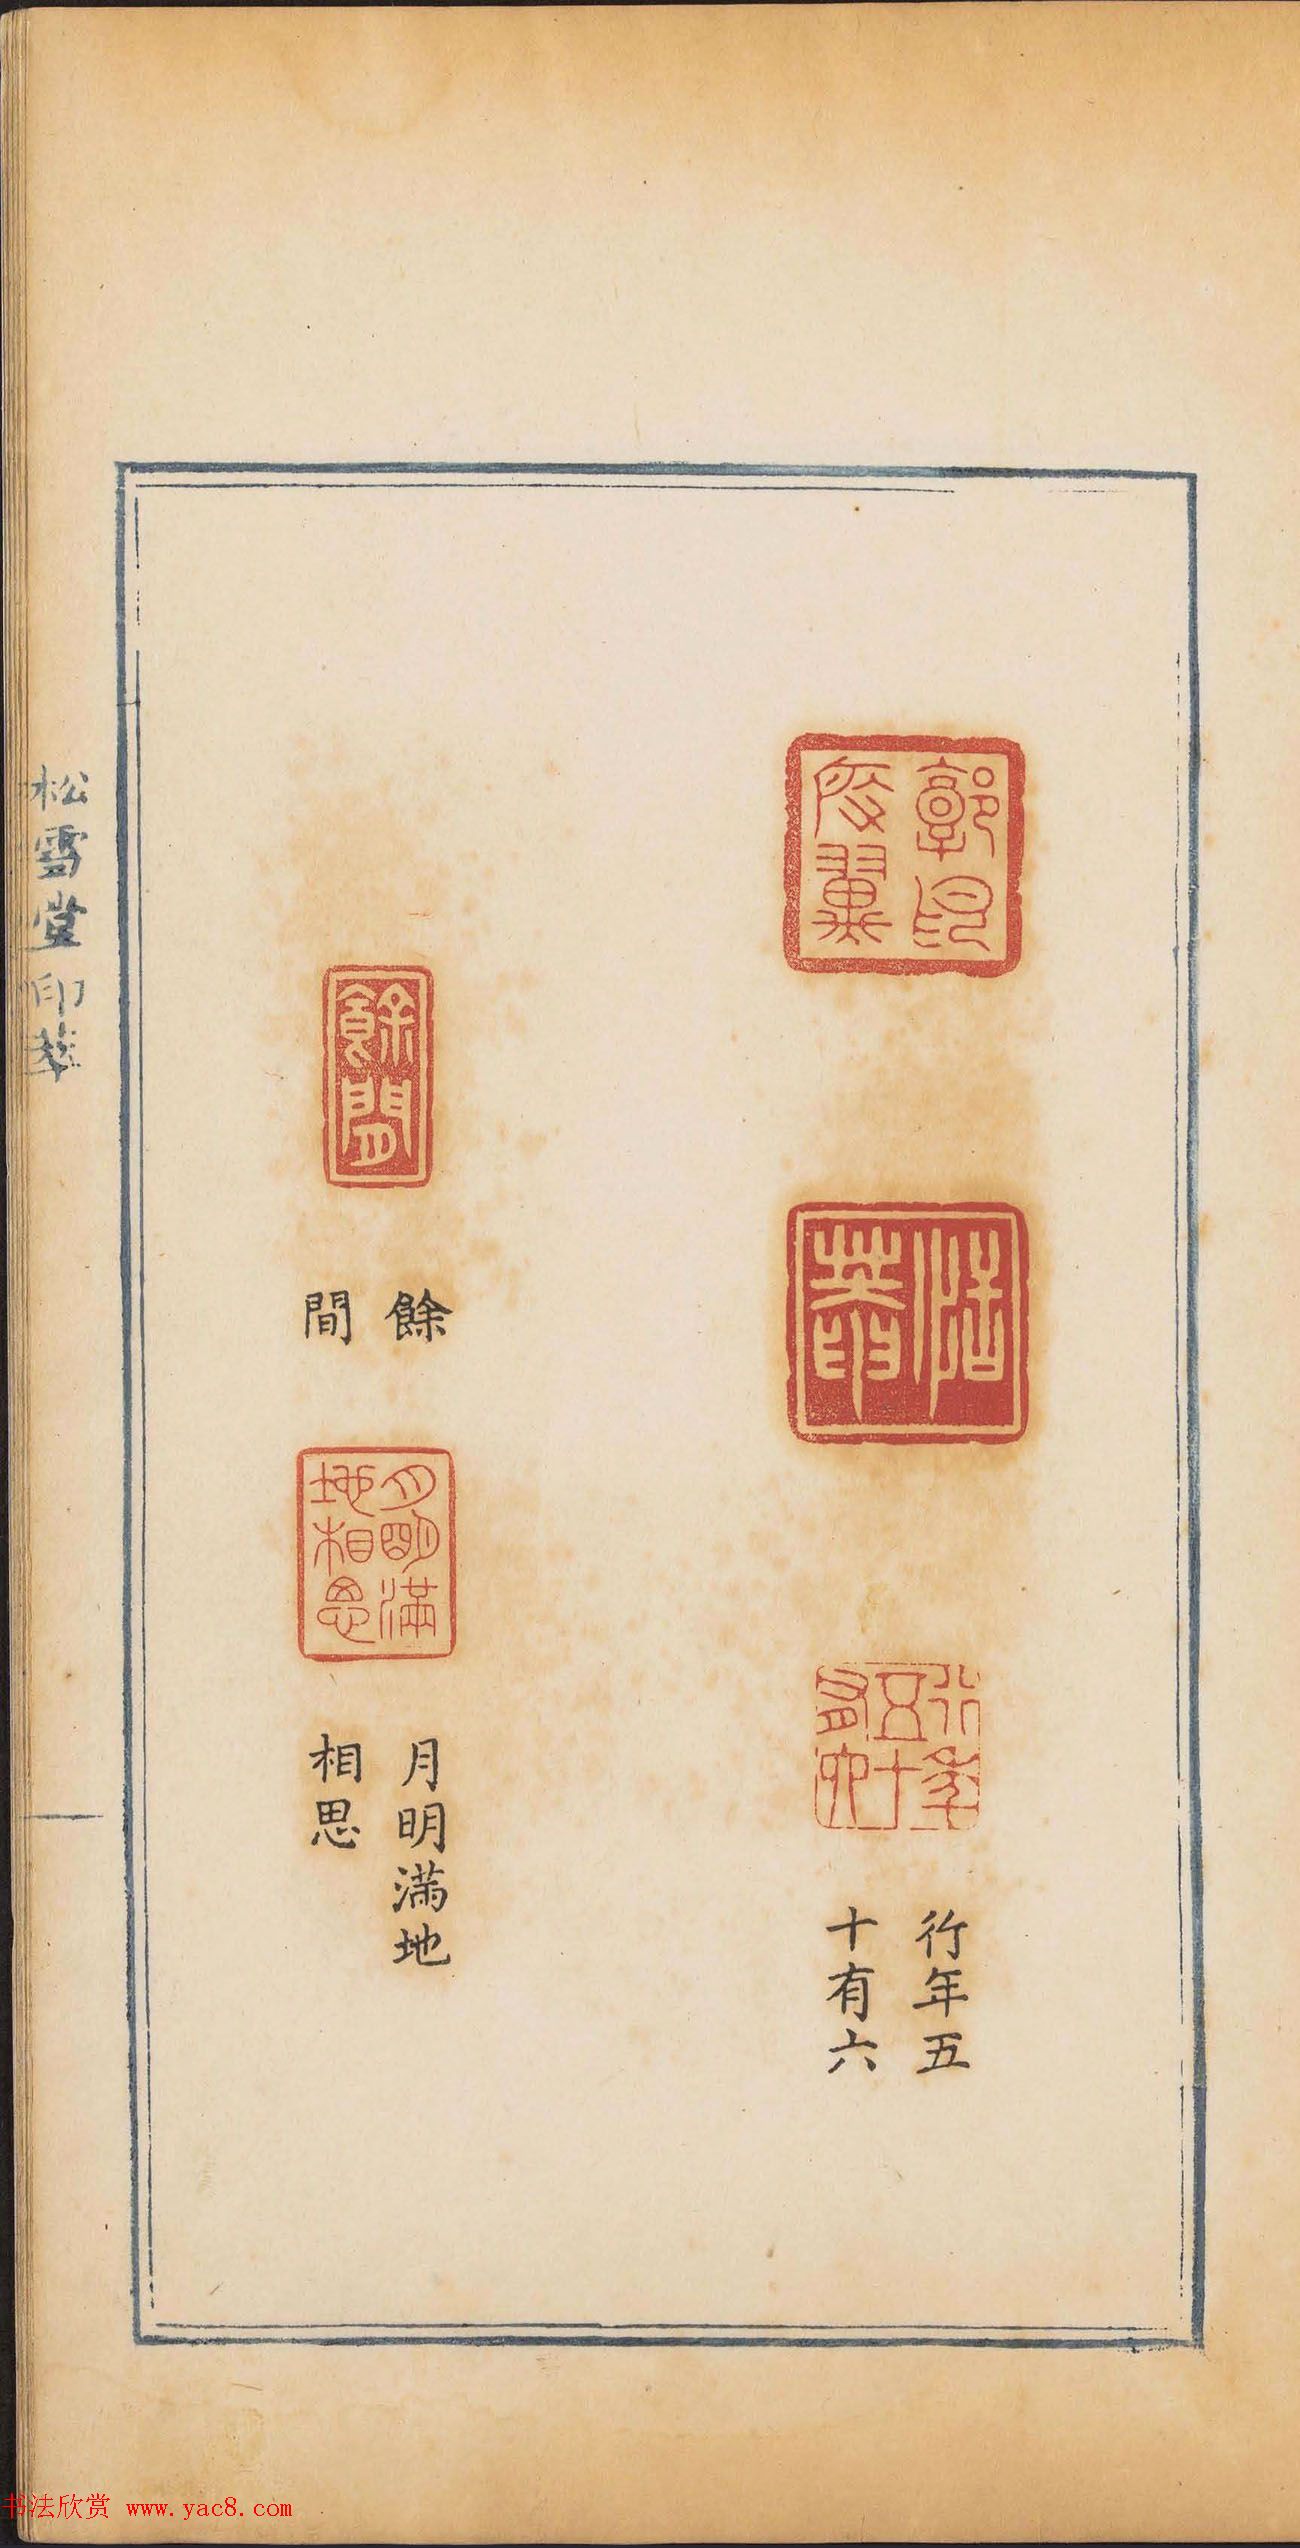 郭印
餘間
行年
五十
有六
行年五
十有六
餘
間
月明滿
地相思
月明滿地
相思
松雪堂印萃
书法欣赏 www.yac8.com